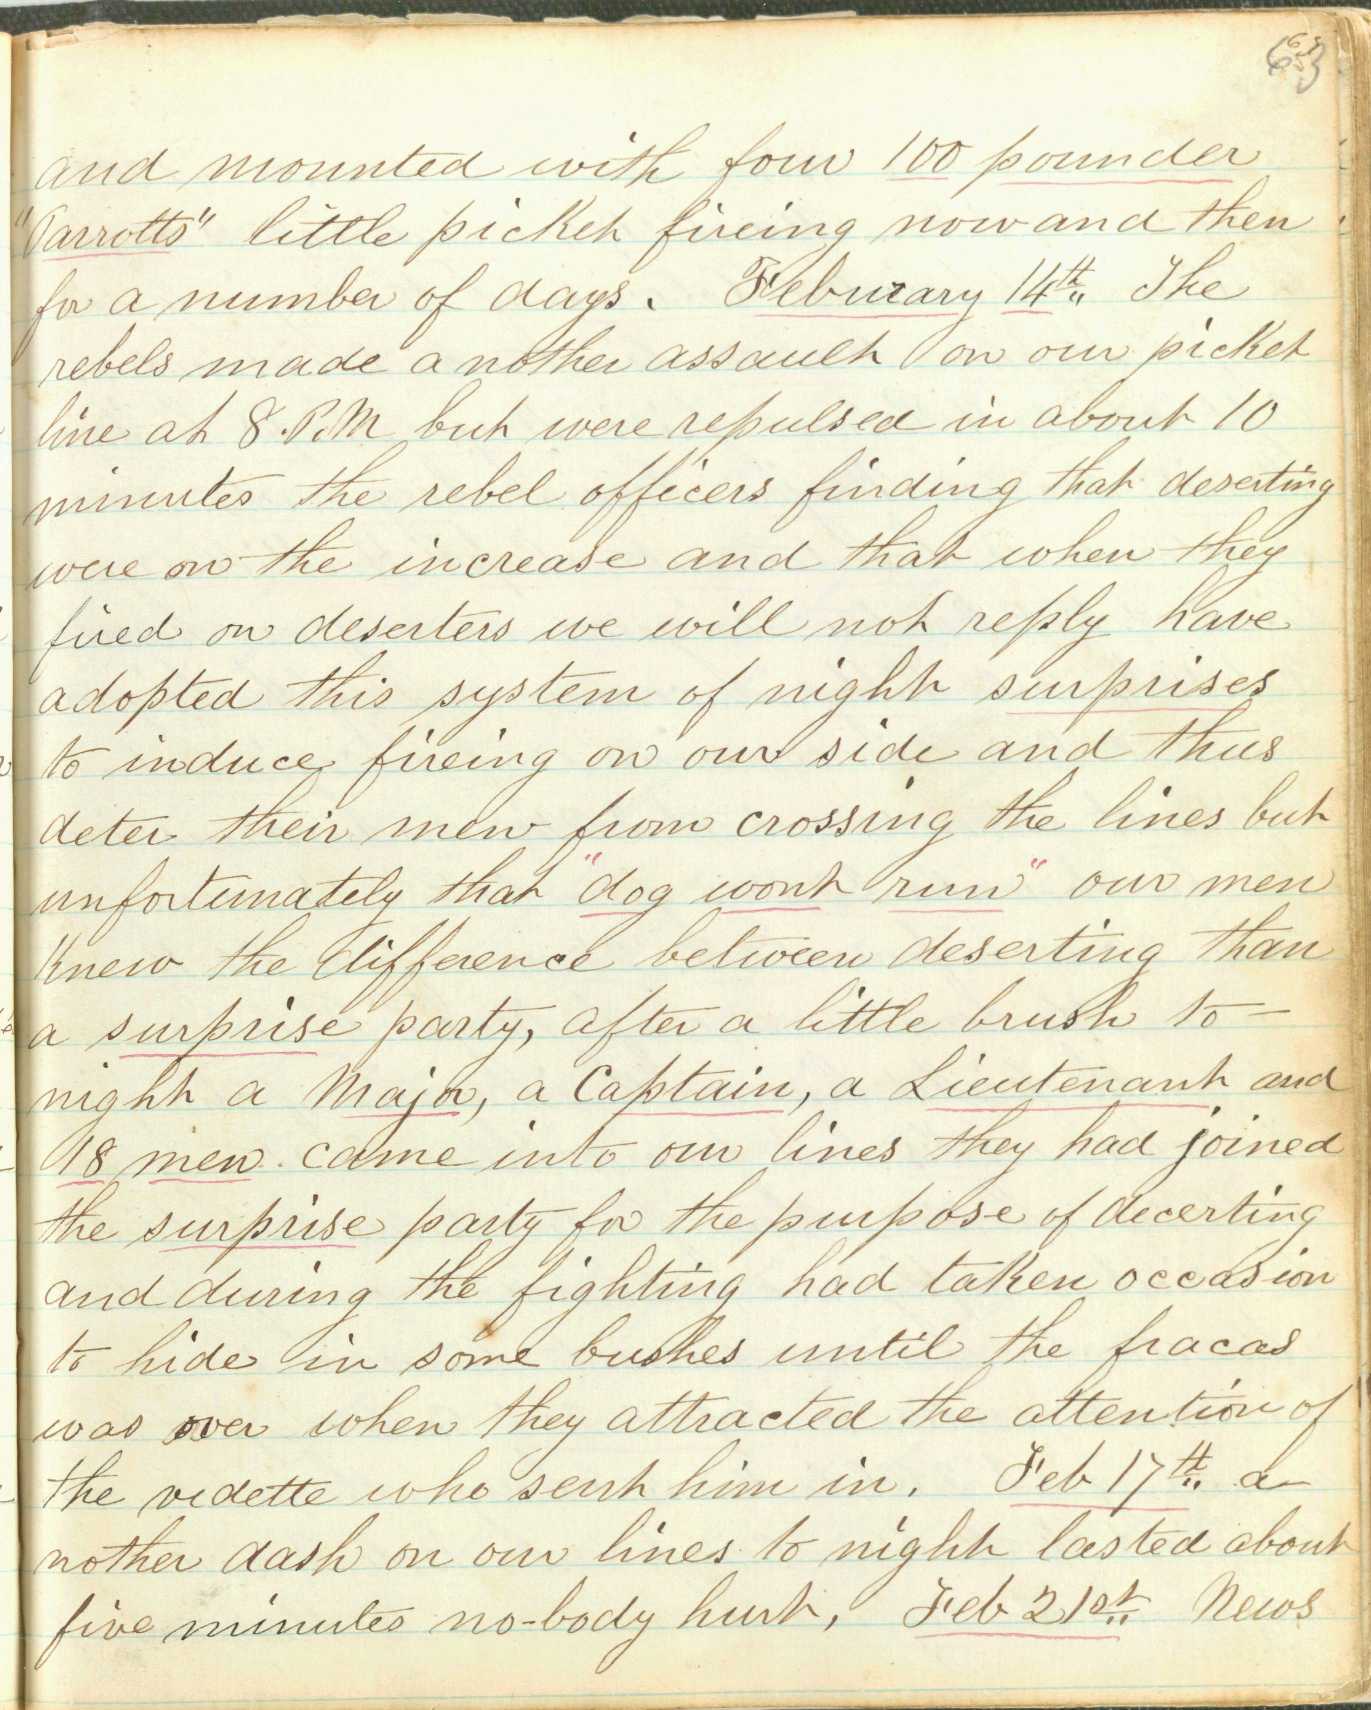 and mounted with four 100 pounder
"Parrotts" little picket fireing now and then
for a number of days. Feburary 14th The
rebels made a nother assault on our picket
line at 8. P.M but were repulsed in about 10
minutes the rebel officers finding that deserting
were on the increase and that when they
fired on deserters we will not reply have
adopted this system of night surprises
to induce fireing on our side and thus
deter their men from crossing the lines but
unfortunately that "dog wont run" our men
Knew the difference between deserting than
a surprise party, after a little brush to-
night a Major, a Captain, a Lieutenant and
18 men. came into our lines they had joined
the surprise party for the purpose of decerting
and during the fighting had taken occasion
to hide in some bushes until the fracas
was over when they attracted the attention of
the vidette who sent him in. Feb 17th a-
nother dash on our lines to night lasted about
five minutes no-body hurt, Feb 21st News